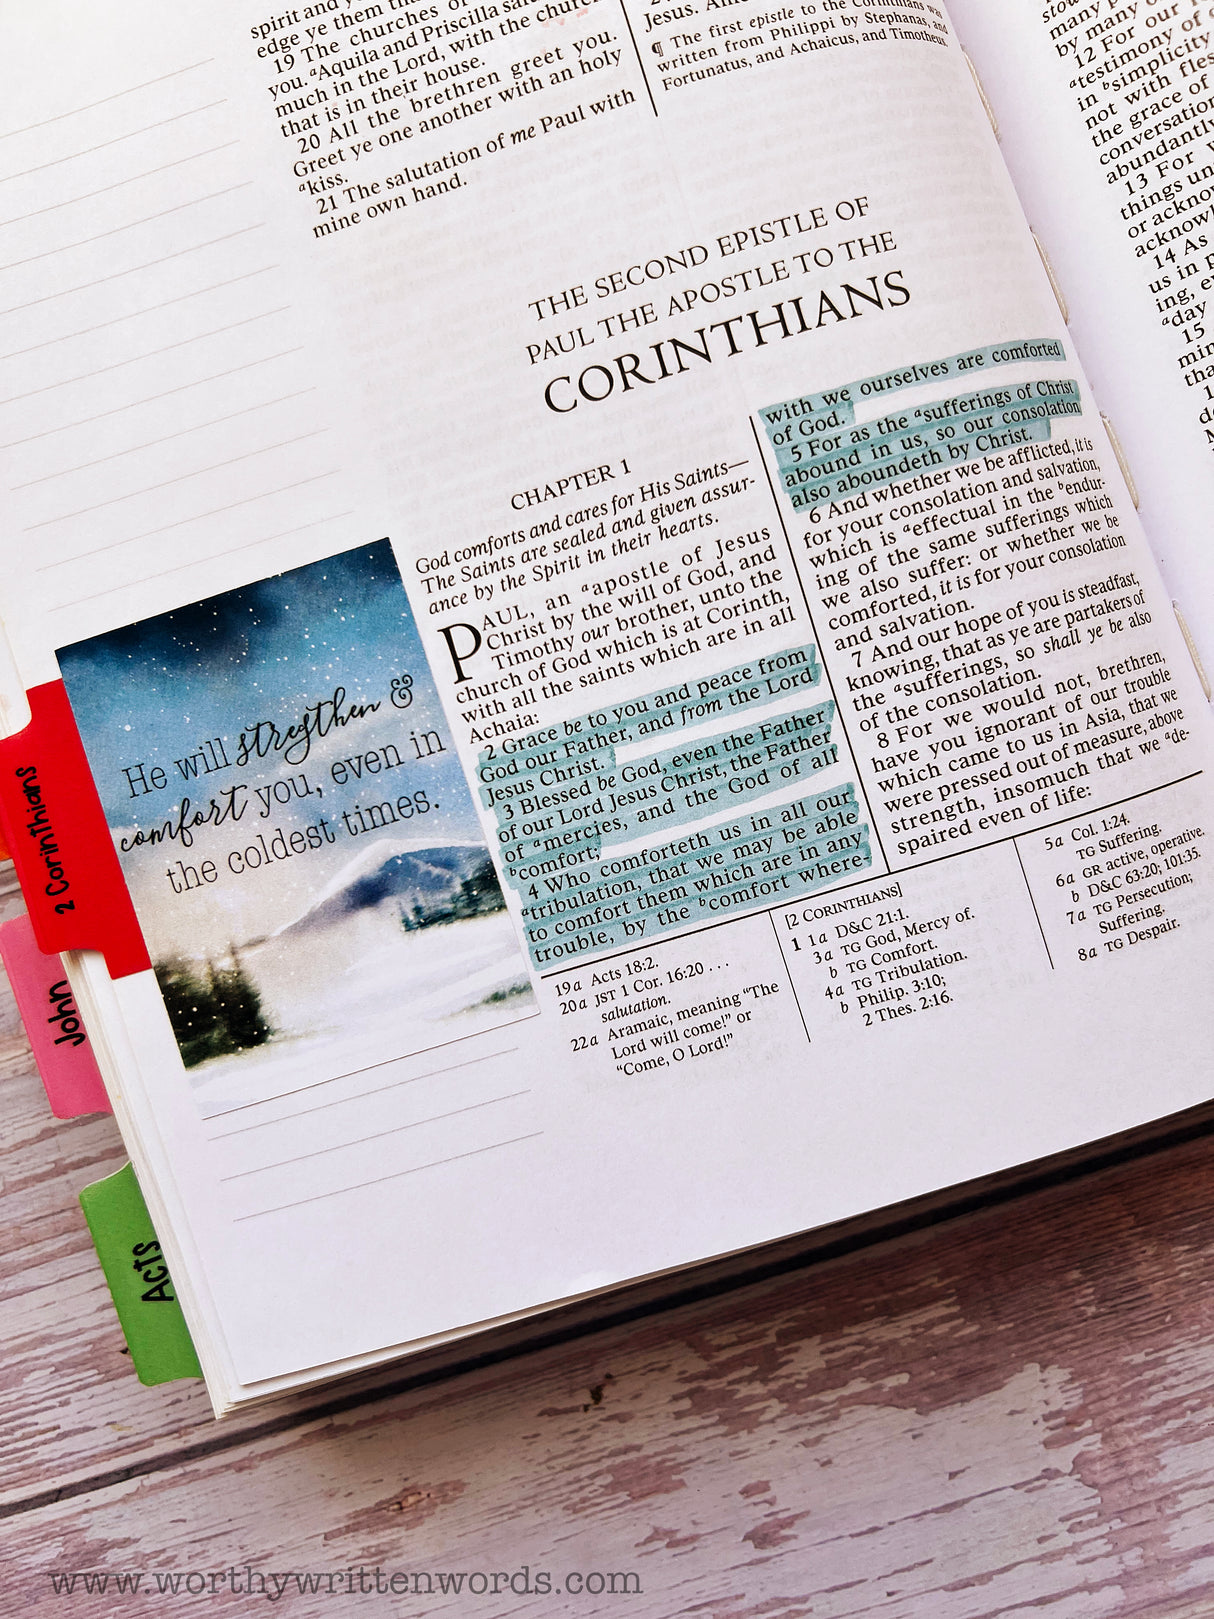 spirit and
edge ye them
19 The churches of
you. aAquila and Priscilla
much in the Lord, with the church
that is in their house.
20 All the brethren greet you.
Greet ye one another with an holy
akiss.
21 The salutation of me Paul with
mine own hand.
Jesus.
¶ The first epistle to the Corinthians was
written from Philippi by Stephanas, and
Fortunatus, and Achaicus, and Timotheus.
THE SECOND EPISTLE OF
PAUL THE APOSTLE TO THE
CORINTHIANS
CHAPTER 1
God comforts and cares for His Saints—
The Saints are sealed and given assur-
ance by the Spirit in their hearts.
PAUL, an aapostle of Jesus
Christ by the will of God, and
Timothy our brother, unto the
church of God which is at Corinth,
with all the saints which are in all
Achaia:
2 Grace be to you and peace from
God our Father, and from the Lord
Jesus Christ.
3 Blessed be God, even the Father
of our Lord Jesus Christ, the Father
of amercies, and the God of all
bcomfort;
4 Who comforteth us in all our
atribulation, that we may be able
to comfort them which are in any
trouble, by the bcomfort where-
with we ourselves are comforted
of God.
5 For as the asufferings of Christ
abound in us, so our consolation
also aboundeth by Christ.
6 And whether we be afflicted, it is
for your consolation and salvation,
which is aeffectual in the bendur-
ing of the same sufferings which
we also suffer: or whether we be
comforted, it is for your consolation
and salvation.
7 And our hope of you is steadfast,
knowing, that as ye are partakers of
the asufferings, so shall ye be also
of the consolation.
8 For we would not, brethren,
have you ignorant of our trouble
which came to us in Asia, that we
were pressed out of measure, above
strength, insomuch that we ade-
spaired even of life:
19a Acts 18:2.
20a JST 1 Cor. 16:20 . . .
salutation.
22a Aramaic, meaning “The
Lord will come!” or
“Come, O Lord!”
[2 CORINTHIANS]
1 1a D&C 21:1.
3a TG God, Mercy of.
b TG Comfort.
4a TG Tribulation.
b Philip. 3:10;
2 Thes. 2:16.
5a Col. 1:24.
TG Suffering.
6a GR active, operative.
b D&C 63:20; 101:35.
7a TG Persecution;
Suffering.
8a TG Despair.
many
by many
12 For our
atestimony of
in bsimplicity
not with
the grace of
conversation
abundantly
13 For
things
or
14 As
us in
ing,
aday
15
He will strengthen &
comfort you, even in
the coldest times.
2 Corinthians
John
Acts
www.worthywrittenwords.com